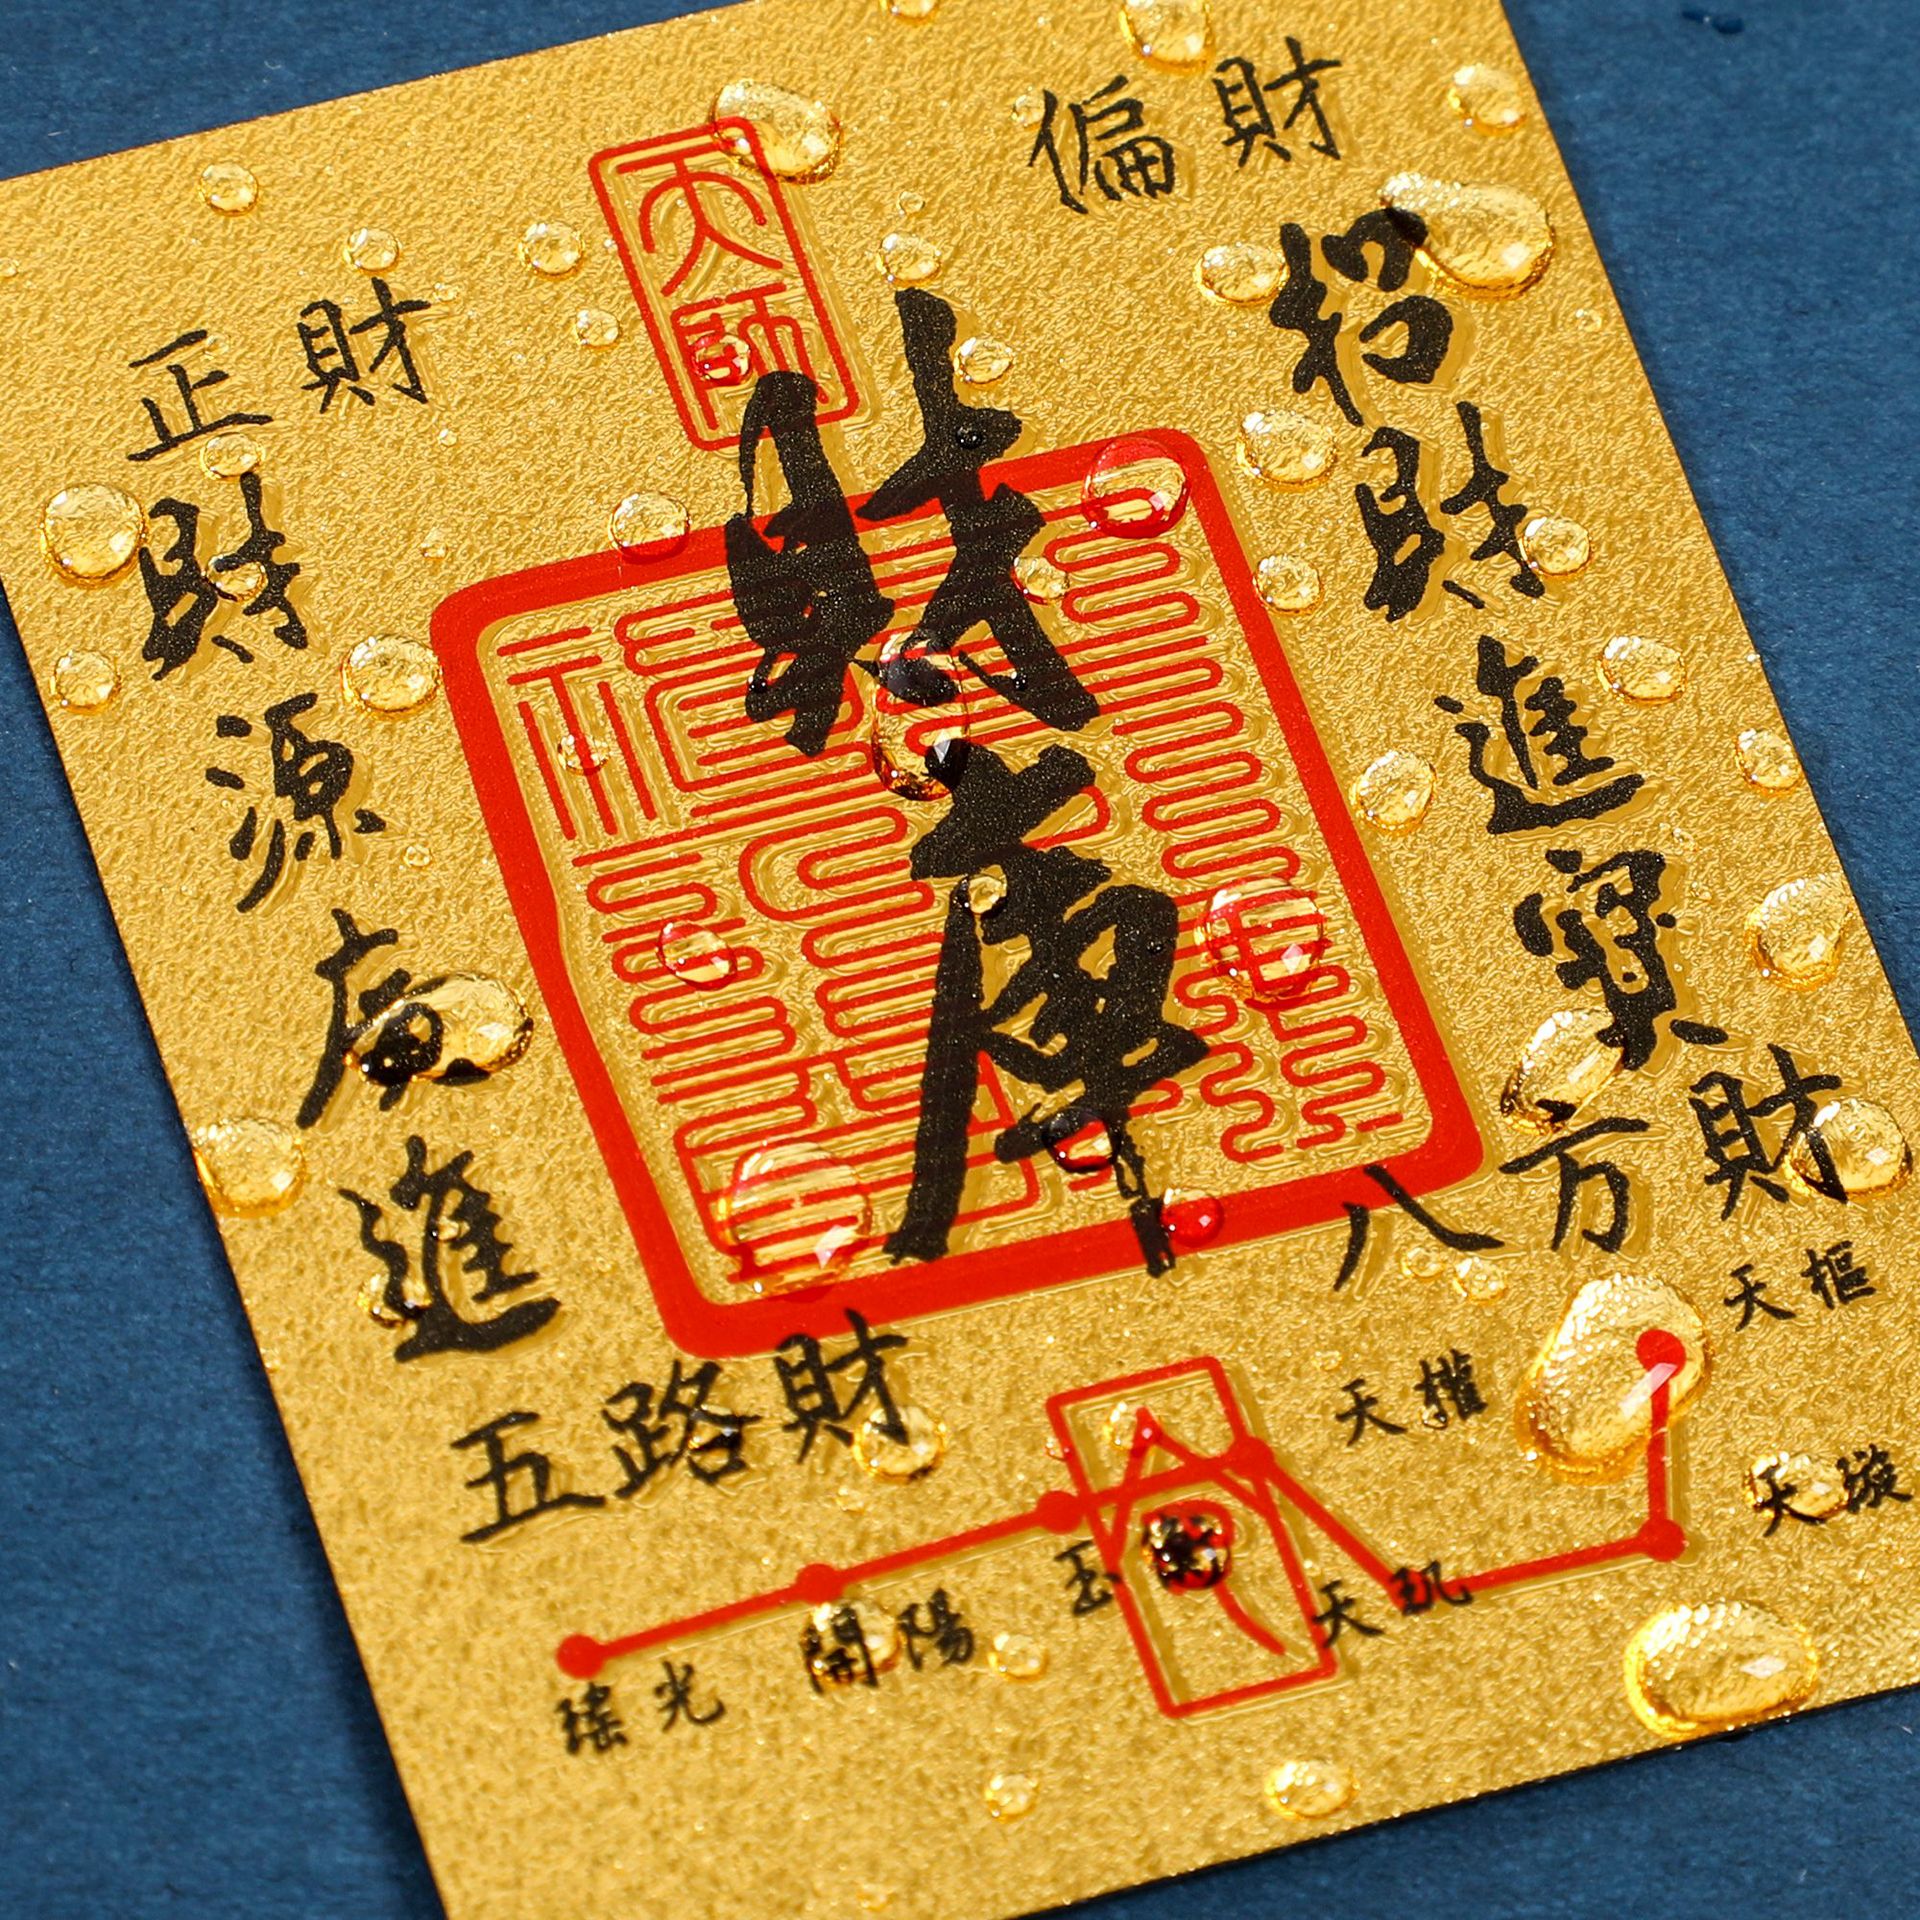 偏財
正財
天師
財庫
招財進寶
財源廣進
八方財
五路財
天樞
天權
天璇
玉衡
天玑
開陽
瑤光